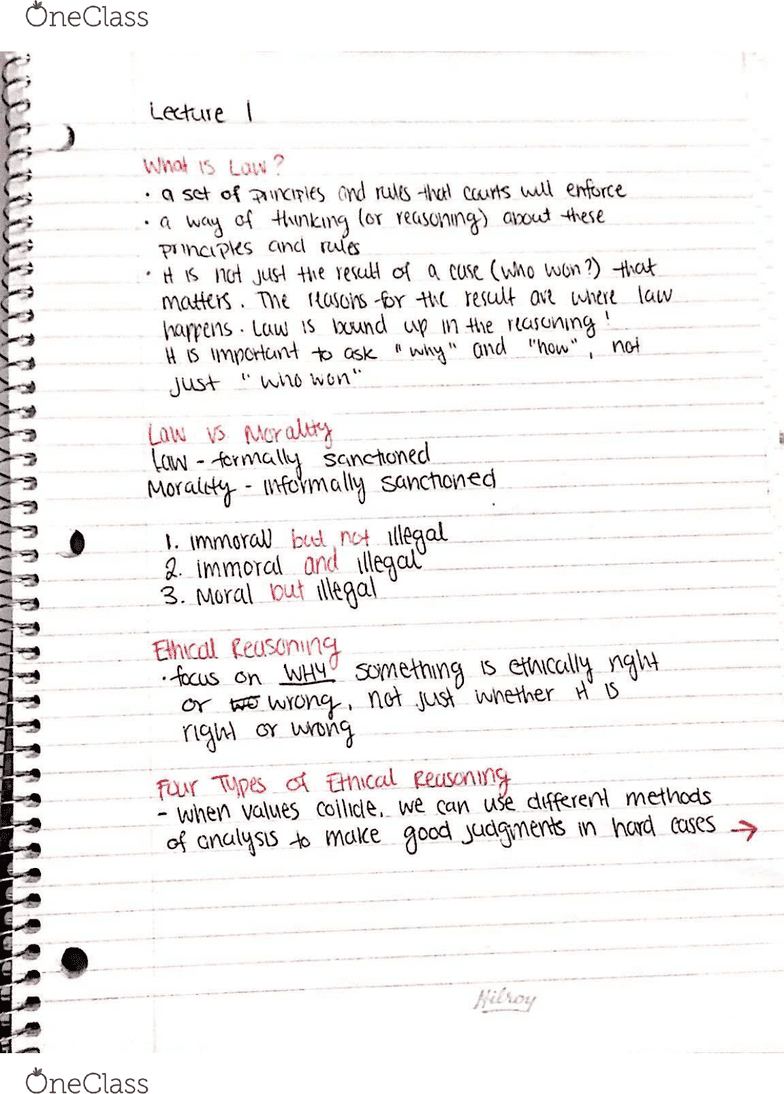 OneClass
Lecture 1
What is Law?
· a set of principles and rules that courts will enforce
· a way of thinking (or reasoning) about these
principles and rules
· It is not just the result of a case (who won?) that
matters. The reasons for the result are where law
happens. Law is bound up in the reasoning!
It is important to ask "why" and "how", not
just "who won"
Law vs Morality
Law - formally sanctioned
Morality - informally sanctioned
1. immoral but not illegal
2. immoral and illegal
3. Moral but illegal
Ethical Reasoning
· focus on WHY something is ethically right
or wrong, not just whether it is
right or wrong
Four Types of Ethical Reasoning
- when values collide, we can use different methods
of analysis to make good judgments in hard cases →
Hilroy
OneClass